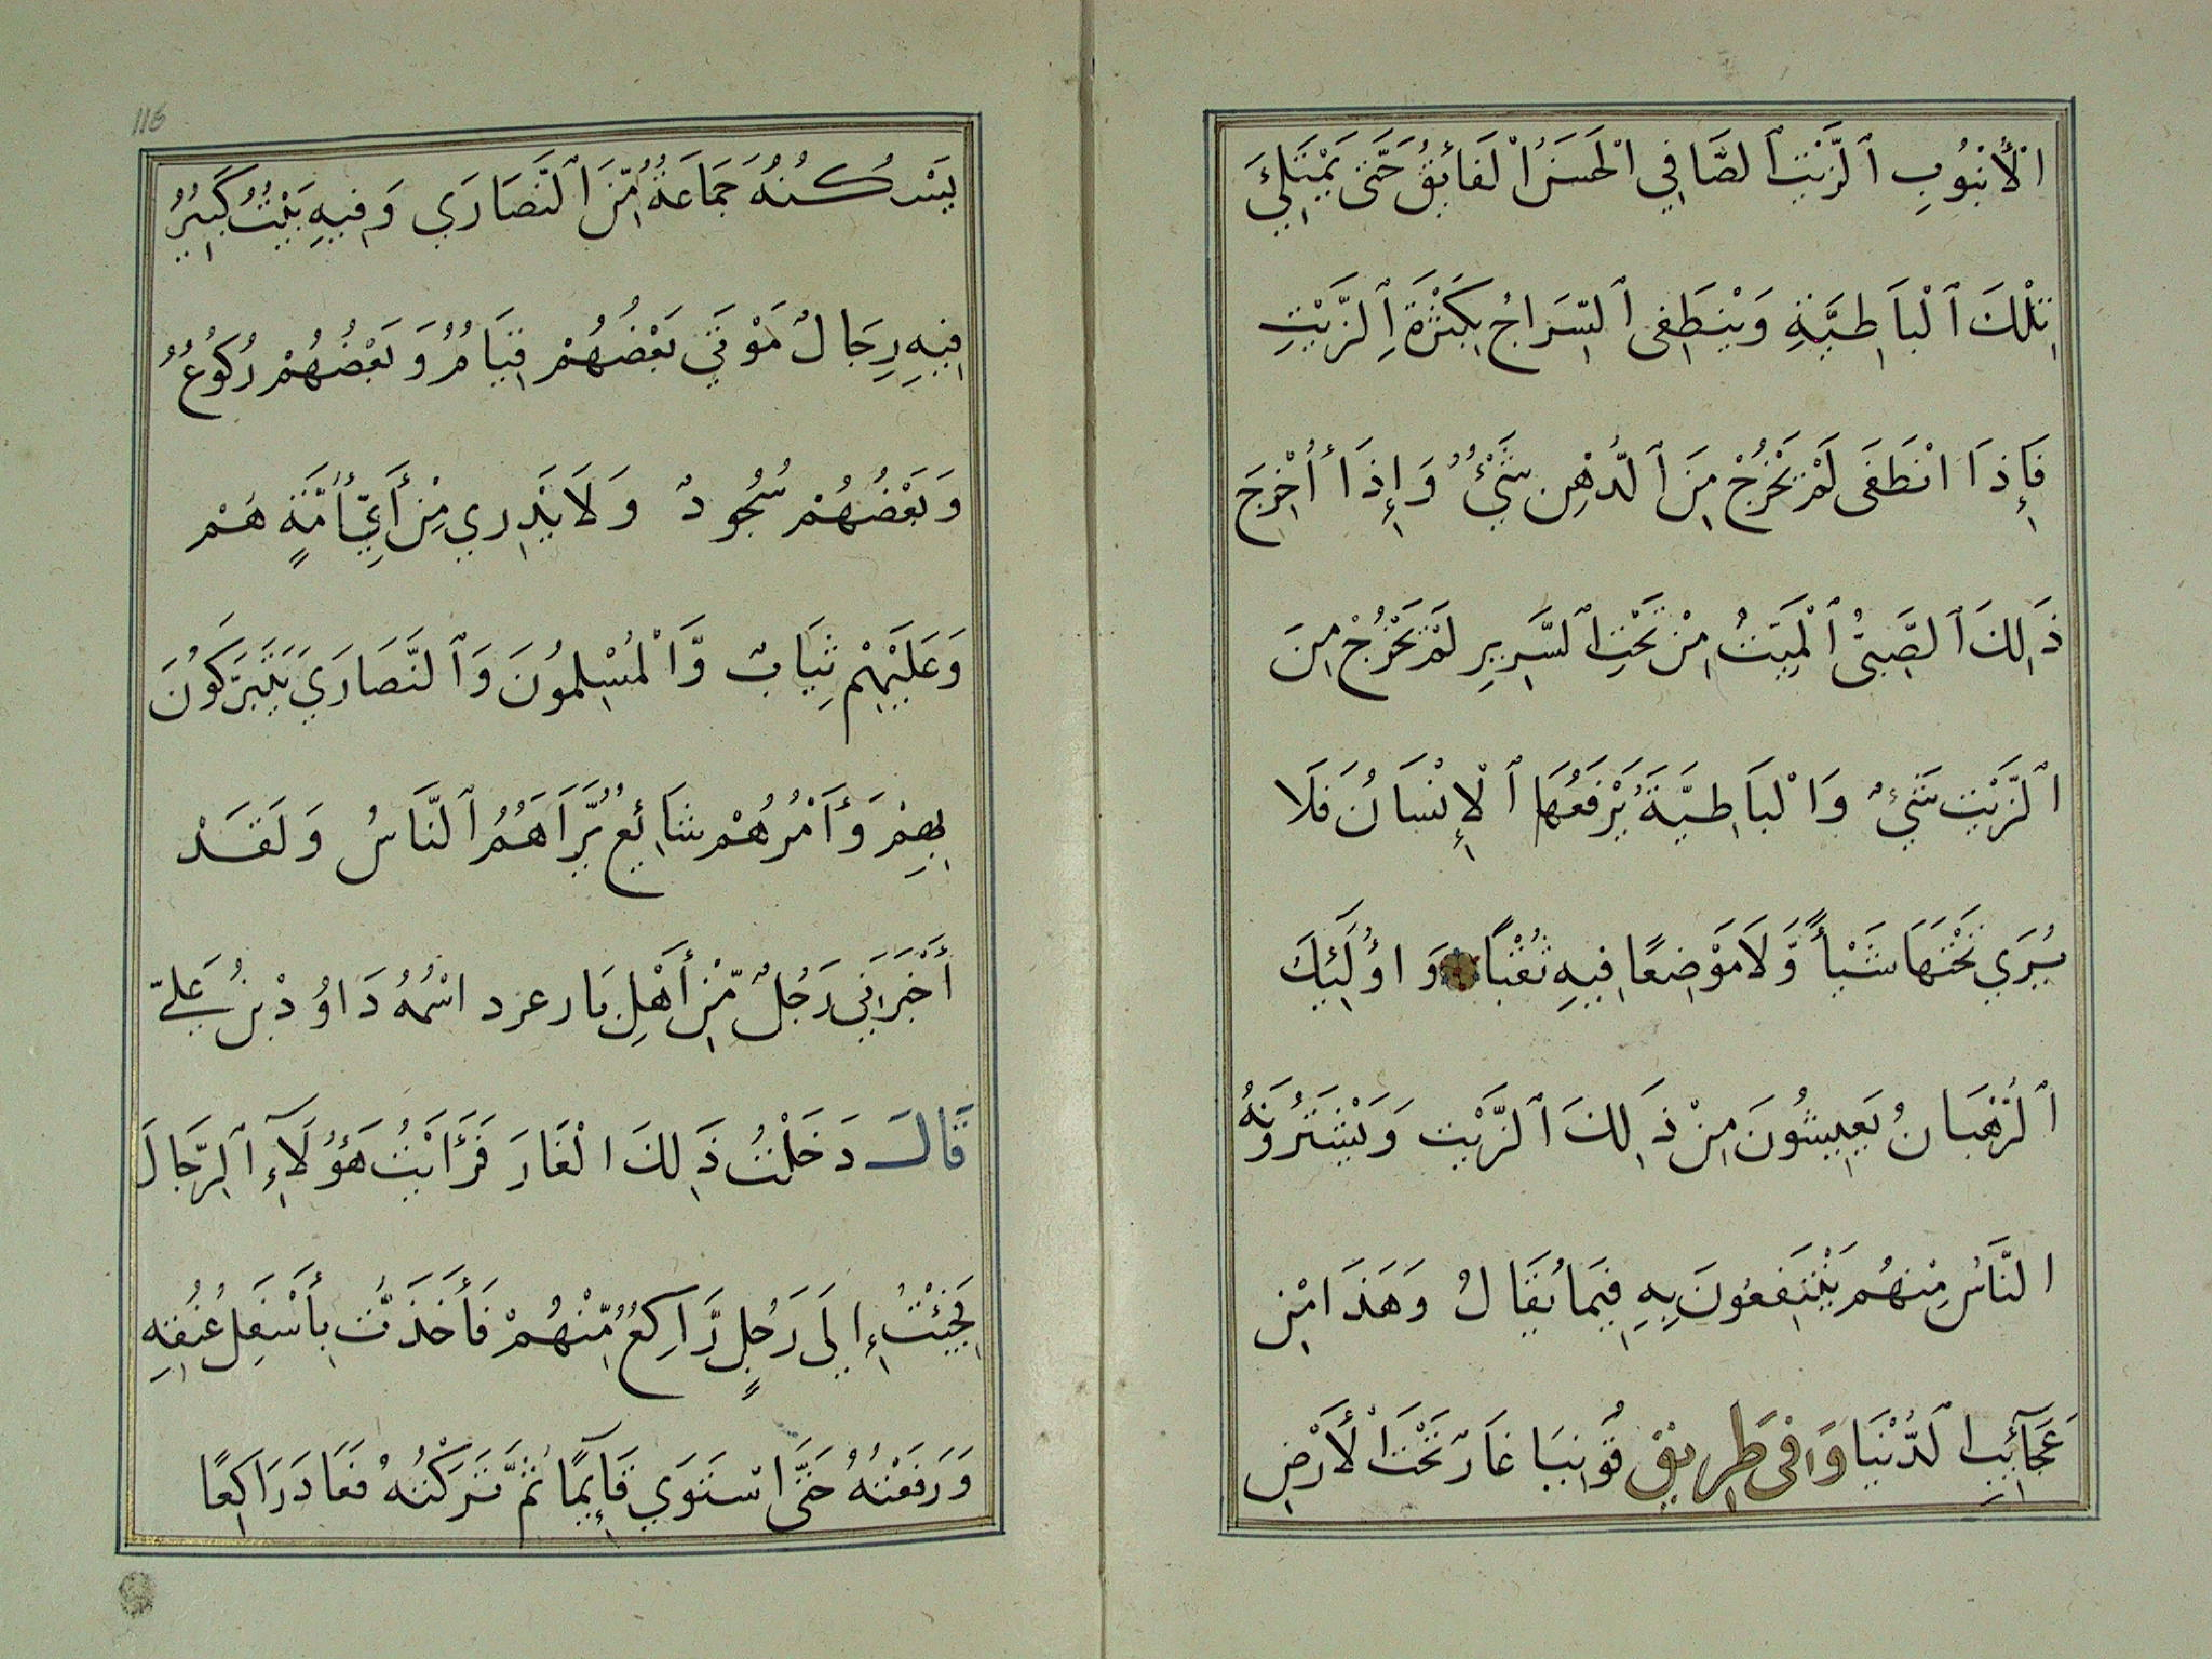 الْأُنْبُوبِ ٱلزَّيْتُ ٱلصَّافِي الْحَسَنُ الْفَائِقُ حَتَّى يَمْتَلِيَ
تِلْكَ ٱلْبَاطِيَّةِ وَيَنْطَفِى ٱلسِّرَاجُ بِكَثْرَةِ ٱلزَّيْتِ
فَإِذَا انْطَفَى لَمْ يَخْرُجْ مِنَ ٱلدُّهْنِ شَيْءٌ وَإِذَا أُخْرِجَ
ذَلِكَ ٱلصَّبِيُّ ٱلْمَيِّتُ مِنْ تَحْتِ ٱلسَّرِيرِ لَمْ يَخْرُجْ مِنَ
ٱلزَّيْتِ شَيْءٌ وَالْبَاطِيَّةَ يَرْفَعُهَا ٱلْإِنْسَانُ فَلَا
يُرَي تَحْتَهَا شَيْأً وَّلَا مَوْضِعًا فِيهِ ثُقْبًا وَاوُلَئِكَ
ٱلرُّهْبَانُ يَعِيشُونَ مِنْ ذَلِكَ ٱلزَّيْتِ وَيَشْتَرُونَهُ
النَّاسُ مِنْهُمْ يَنْتَفِعُونَ بِهِ فِيمَا يُقَالُ وَهَذَا مِنْ
عَجَآئِبِ الدُّنْيَا وَفِى طَرِيقْ قُونِيَا غَارٌ تَحْتَ الْأَرْضِ
يَسْكُنُهُ جَمَاعَةٌ مِّنَ ٱلنَّصَارَي وَفِيهِ بَيْتٌ كَبِيرٌ
فِيهِ رِجَالٌ مَوْتَي بَعْضُهُمْ قِيَامٌ وَبَعْضُهُمْ رُكُوعٌ
وَبَعْضُهُمْ سُجُودٌ وَلَا يَدْرِي مِنْ أَيِّ أُمَّةٍ هُمْ
وَعَلَيْهِمْ ثِيَابٌ وَّالْمُسْلِمُونَ وَٱلنَّصَارَيَ يَتَبَرَّكُونَ
بِهِمْ وَأَمْرُهُمْ شَائِعٌ يَّرَاهُمُ ٱلنَّاسُ وَلَقَدْ
أَخْبَرَنِي رَجُلٌ مِّنْ أَهْلِ مَارعرد اسْمُهُ دَاوُدْ بْنُ عَلِيّ
قَالَ دَخَلْتُ ذَلِكَ الْغَارَ فَرَأَيْتُ هَؤُلَآءِ ٱلرِّجَالَ
فَجِئْتُ إِلَى رَجُلٍ رَّاكِعٌ مِّنْهُمْ فَأَخَذتُّ بِأَسْفَلِ عُنُقِهِ
وَرَفَعْتُهُ حَتَّى اسْتَوَي قَآئِمًا ثُمَّ تَرَكْتُهُ فَعَادَ رَاكِعًا
116